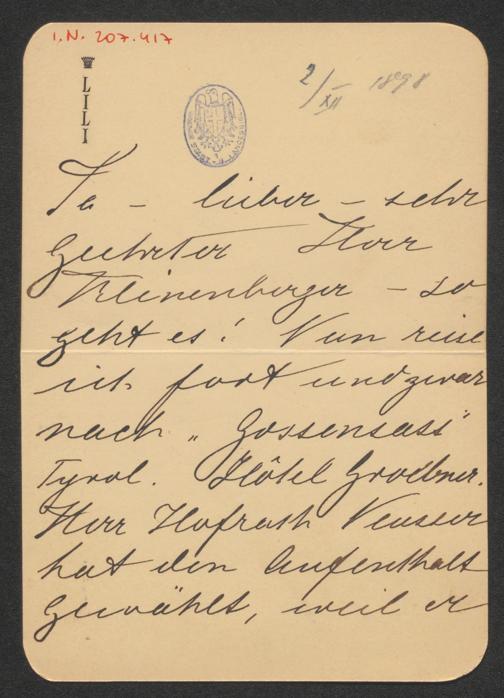 I.N. 207.417
LILI
2/XII 1898
Ja - lieber - sehr
geehrter Herr
Kleinenberger - so
geht es! Nun reise
ich fort und zwar
nach "Gossensass"
Tyrol. Hôtel Gröbner.
Herr Hofrath Neusser
hat den Aufenthalt
gewählt, weil er